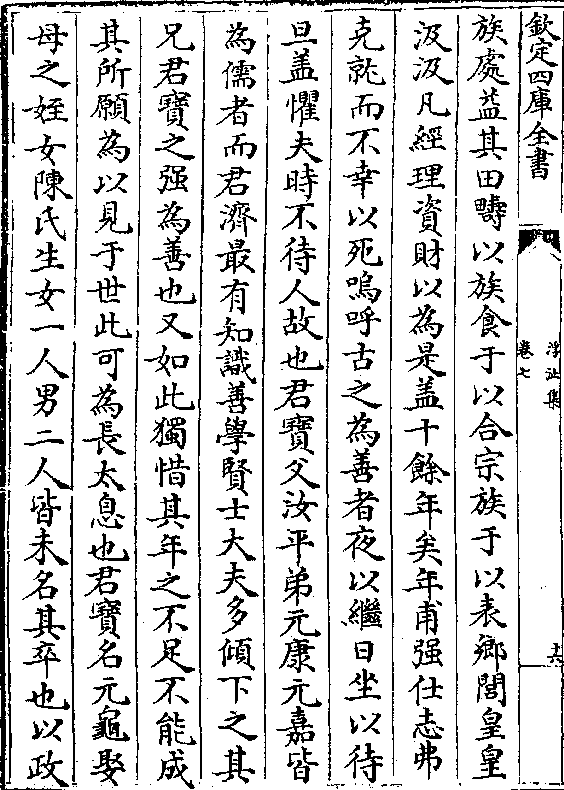 欽定四庫全書
浮沚集
卷七
十六
族處益其田疇以族食于以合宗族于以表鄉閭皇皇
汲汲凡經理資財以為是盖十餘年矣年甫强仕志弗
克就而不幸以死嗚呼古之為善者夜以繼日坐以待
旦盖懼夫時不待人故也君寶父汝平弟元康元嘉皆
為儒者而君濟最有知識善學賢士大夫多傾下之其
兄君寶之强為善也又如此獨惜其年之不足不能成
其所願為以見于世此可為長太息也君寶名元龜娶
母之姪女陳氏生女一人男二人皆未名其卒也以政